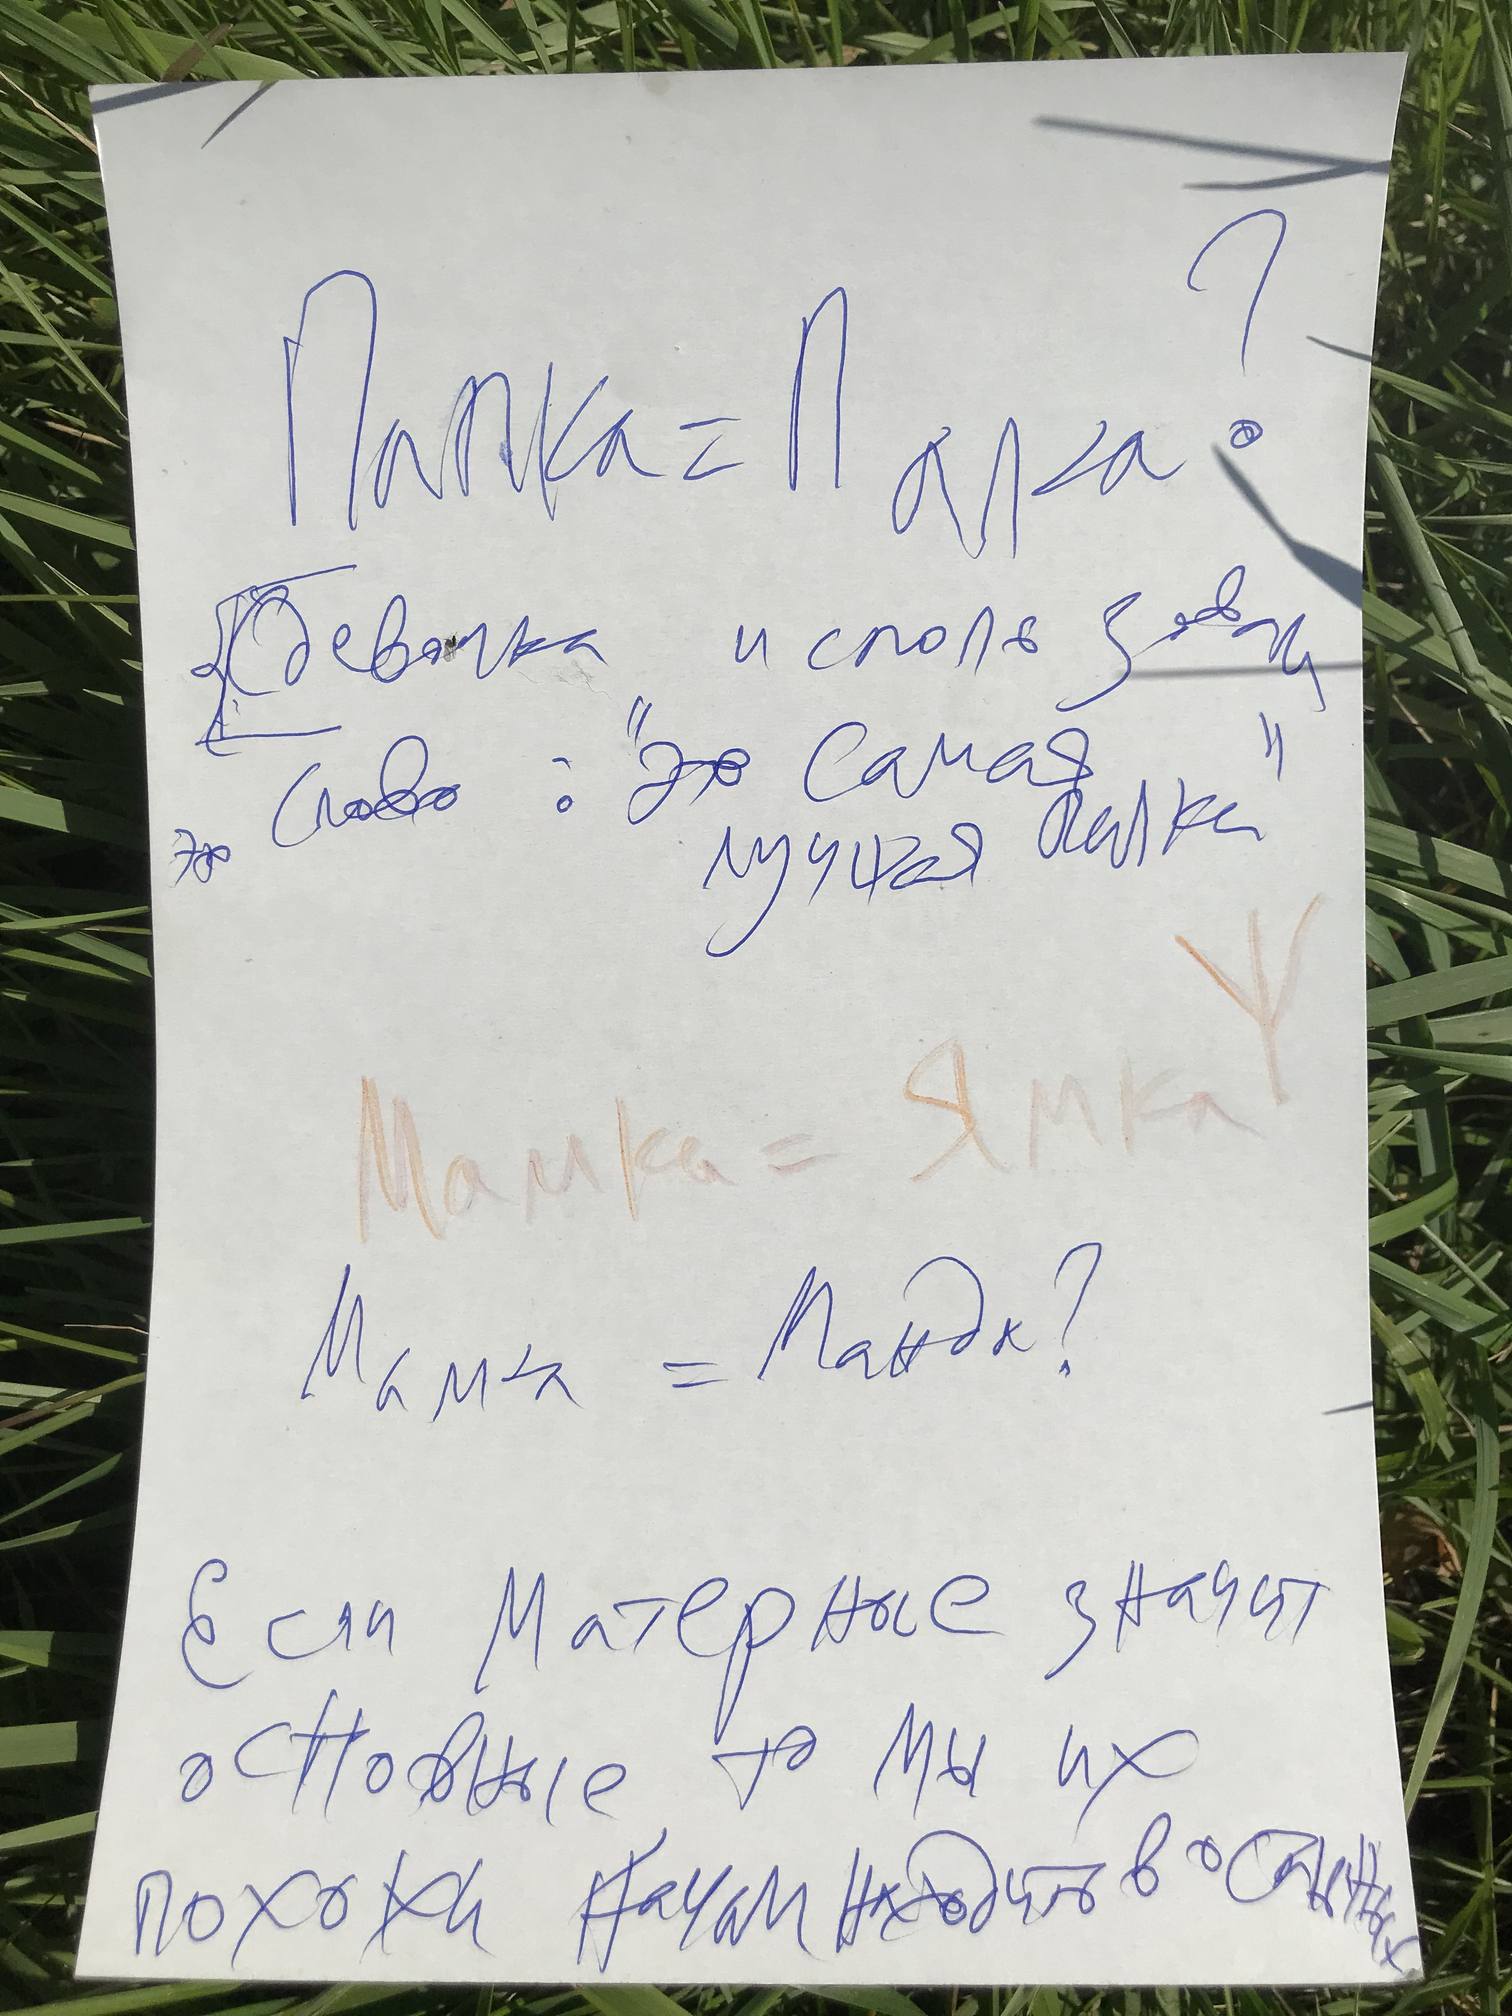 Папка = Палка?
Девочка использовал
слово : "это самая
это лучшая палка"
Мамка = Ямка
Мамка = Манда?
Если матерные значит
основные то мы их
похожи начали находить в остальных